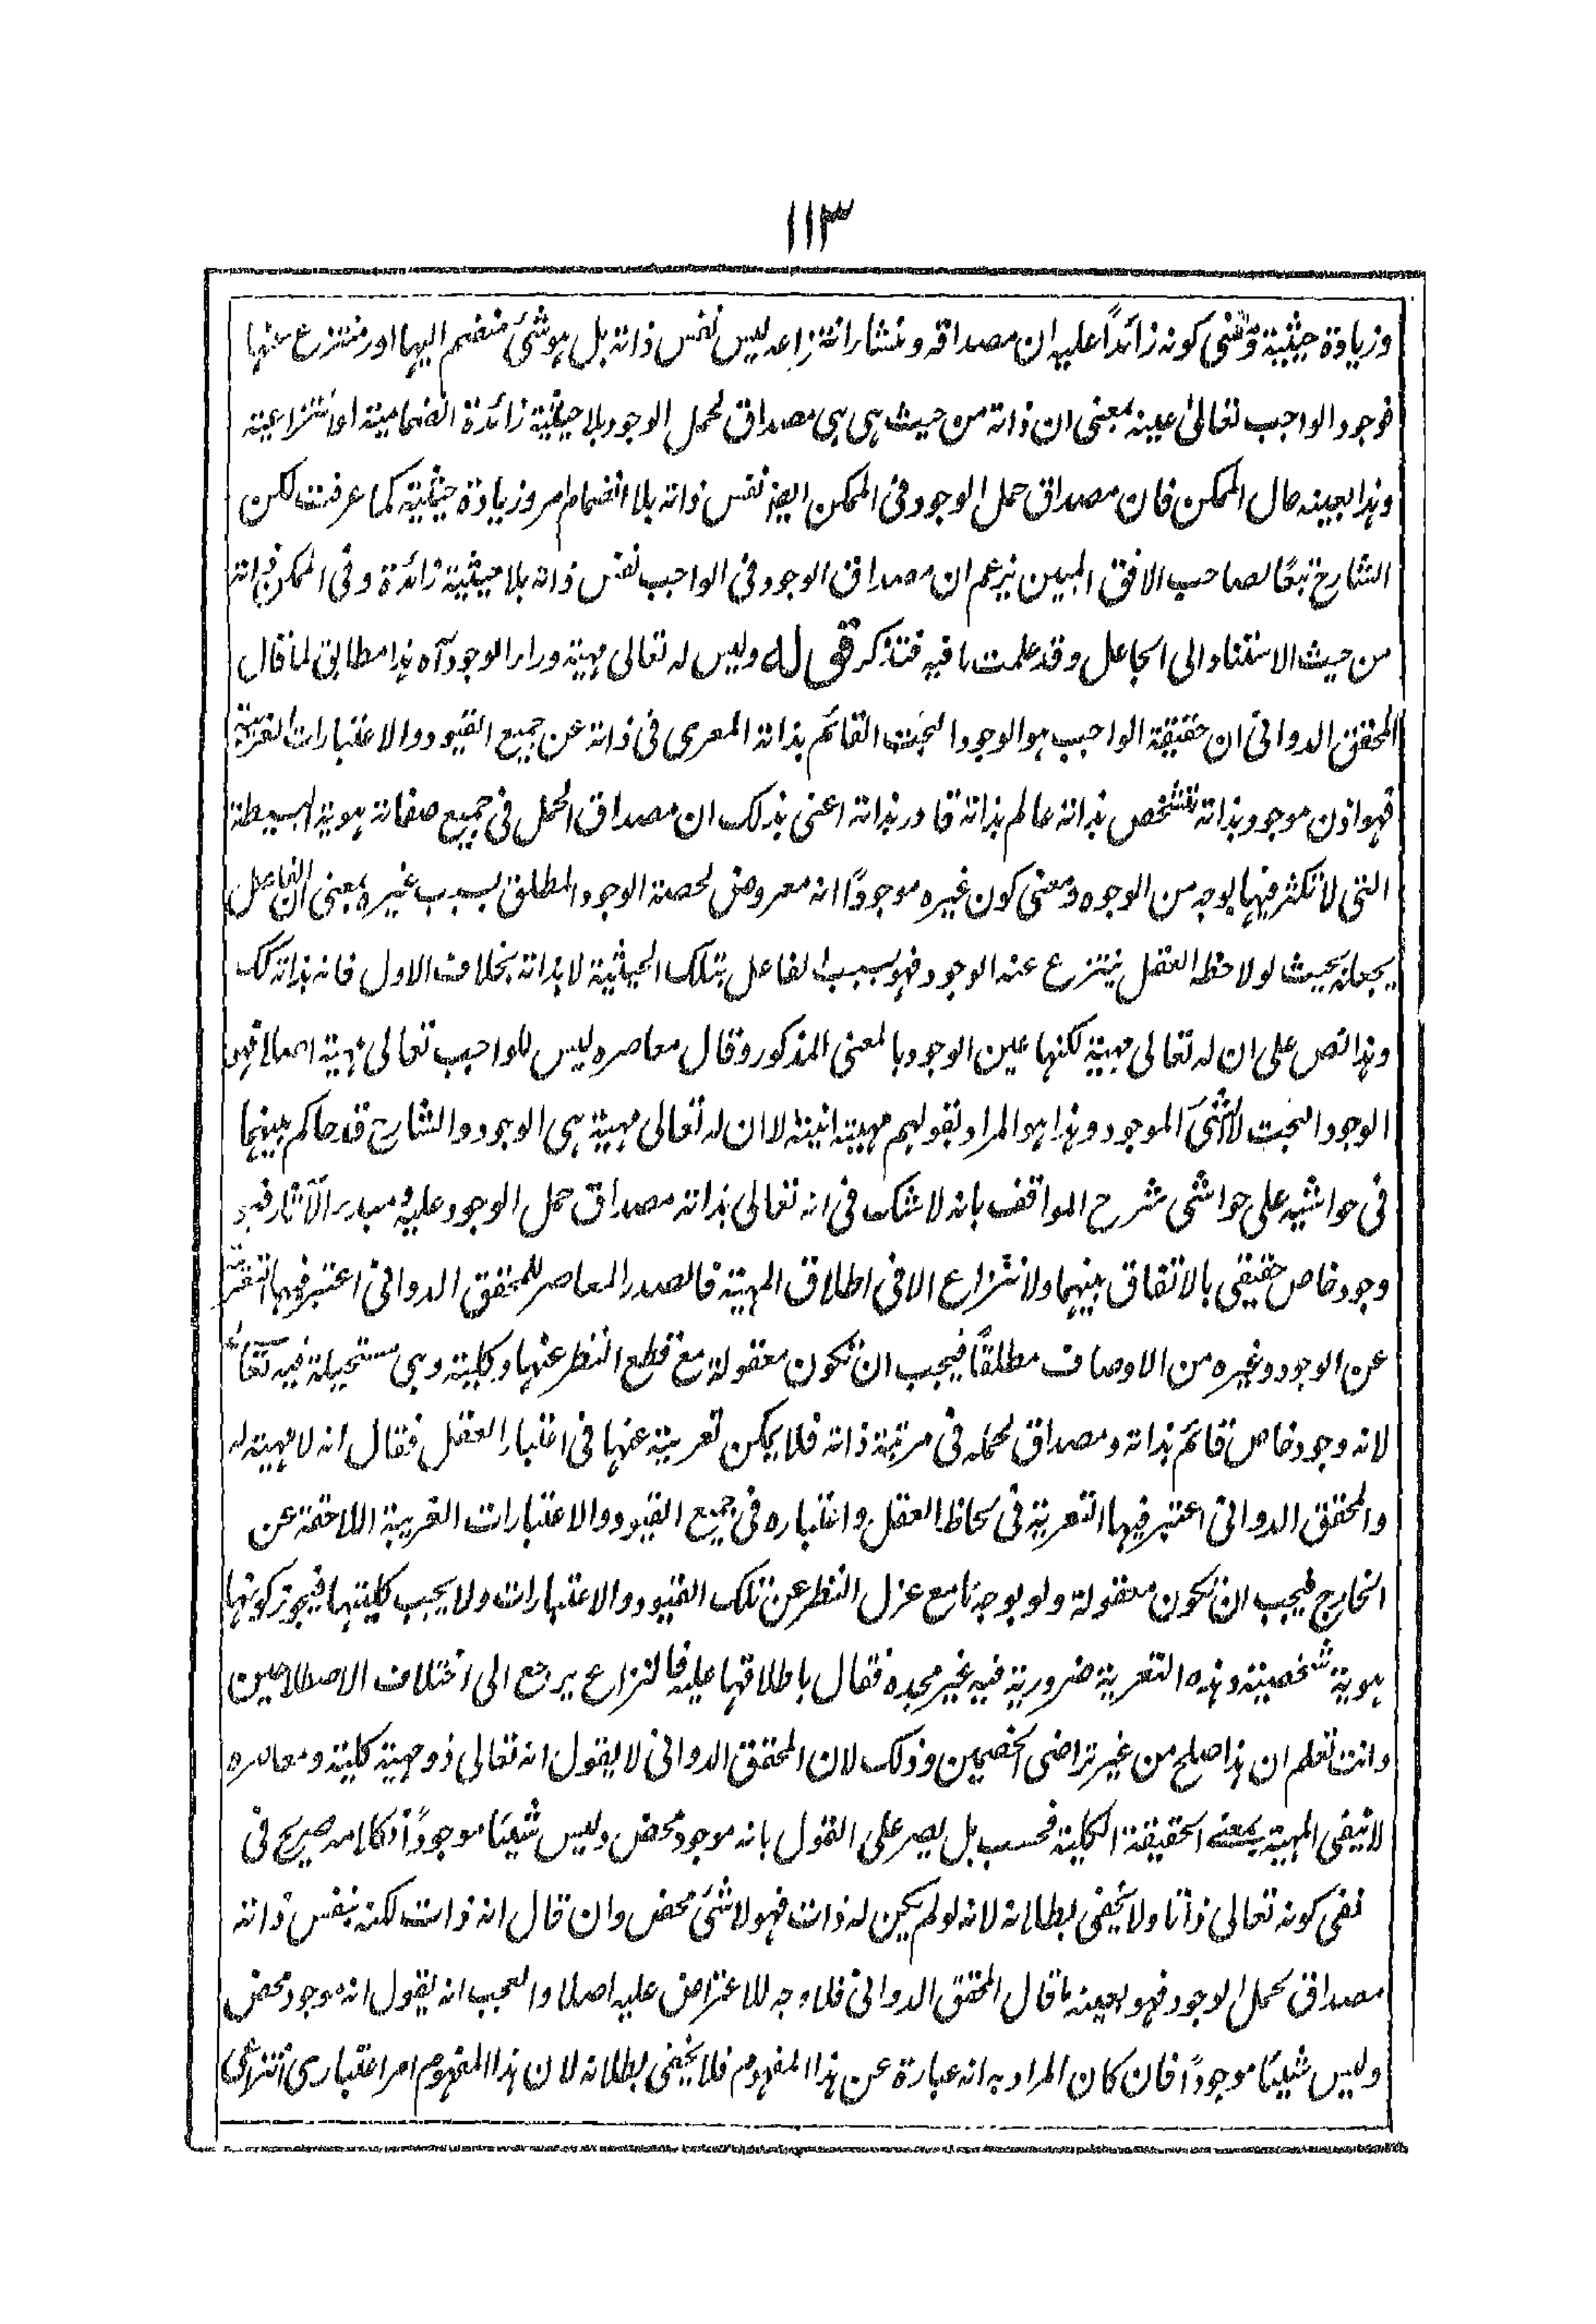 ١١٣
وزيادة حيثية ومعنى كونه زائدًا عليه ان مصداقه ومنشأ انتزاعه ليس نفس ذاته بل هو شئ منضم اليها او منتزع عنها
فوجود الواجب تعالى عينه بمعنى ان ذاته من حيث هى هى مصداق لحمل الوجود بلا حيثية زائدة انضمامية او انتزاعية
وهذا بعينه حال الممكن فان مصداق حمل الوجود فى الممكن ايضا نفس ذاته بلا انضمام امر وزيادة حيثية كما عرفت لكن
الشارح تبعًا لصاحب الافق المبين يزعم ان مصداق الوجود فى الواجب نفس ذاته بلا حيثية زائدة وفى الممكن ذاته
من حيث الاستناد الى الجاعل وقد علمت ما فيه فتذكر قوله وليس له تعالى مهية وراء الوجود آه هذا مطابق لما قال
المحقق الدوانى ان حقيقة الواجب هو الوجود البحت القائم بذاته المعرى فى ذاته عن جميع القيود والاعتبارات الغريبة
فهو اذن موجود بذاته متشخص بذاته عالم بذاته قادر بذاته اعنى بذلك ان مصداق الحمل فى جميع صفاته هويته البسيطة
التى لا تكثر فيها بوجه من الوجوه ومعنى كون غيره موجودًا انه معروض لحصة الوجود المطلق بسبب غيره بمعنى ان الفاعل
يجعله بحيث لو لاحظه العقل ينتزع عنه الوجود فهو بسبب الفاعل بتلك الحيثية لا بذاته بخلاف الاول فانه بذاته كك
وهذا نص على ان له تعالى مهية لكنها عين الوجود بالمعنى المذكور وقال معاصره ليس للواجب تعالى مهية اصلا فهو
الوجود البحت لا الشئ الموجود وهذا هو المراد بقولهم مهيته انيته لا ان له تعالى مهية هى الوجود والشارح قد حاكم بينهما
فى حواشيه على حواشى شرح المواقف بانه لا شك فى انه تعالى بذاته مصداق حمل الوجود عليه ومبدء الآثار فهو
وجود خاص حقيقى بالاتفاق بينهما ولا نزاع الا فى اطلاق المهية فالصدر المعاصر للمحقق الدوانى اعتبر فيها التعرية
عن الوجود وغيره من الاوصاف مطلقًا فيجب ان تكون معقولة مع قطع النظر عنها وكلية وهى مستحيلة فيه تعالى
لانه وجود خاص قائم بذاته ومصداق لحمله فى مرتبة ذاته فلا يمكن تعريته عنها فى اعتبار العقل فقال انه لا مهية له
والمحقق الدوانى اعتبر فيها التعرية فى لحاظ العقل واعتباره فى جميع القيود والاعتبارات الغريبة اللاحقة عن
الخارج فيجب ان تكون معقولة ولو بوجه ما مع عزل النظر عن تلك القيود والاعتبارات ولا يجب كليتها فيجوز كونها
هوية شخصية وهذه التعرية ضرورية فيه غير مجده فقال باطلاقها عليه فالنزاع يرجع الى اختلاف الاصطلاحين
وانت تعلم ان هذا صلح من غير تراضى الخصمين وذلك لان المحقق الدوانى لا يقول انه تعالى ذو مهية كلية ومعاصره
لا ينفى المهية بمعنى الحقيقة الكلية فحسب بل يصر على القول بانه موجود محض وليس شيئا موجودًا اذ كلامه صريح فى
نفى كونه تعالى ذاتا ولا يخفى بطلانه لانه لو لم يكن له ذات فهو لا شئ محض وان قال انه ذات لكنه بنفس ذاته
مصداق لحمل الوجود فهو بعينه ما قال المحقق الدوانى فلا وجه للاعتراض عليه اصلا والعجب انه يقول انه موجود محض
وليس شيئا موجودًا فان كان المراد به انه عبارة عن هذا المفهوم فلا يخفى بطلانه لان هذا المفهوم امر اعتبارى انتزاعى